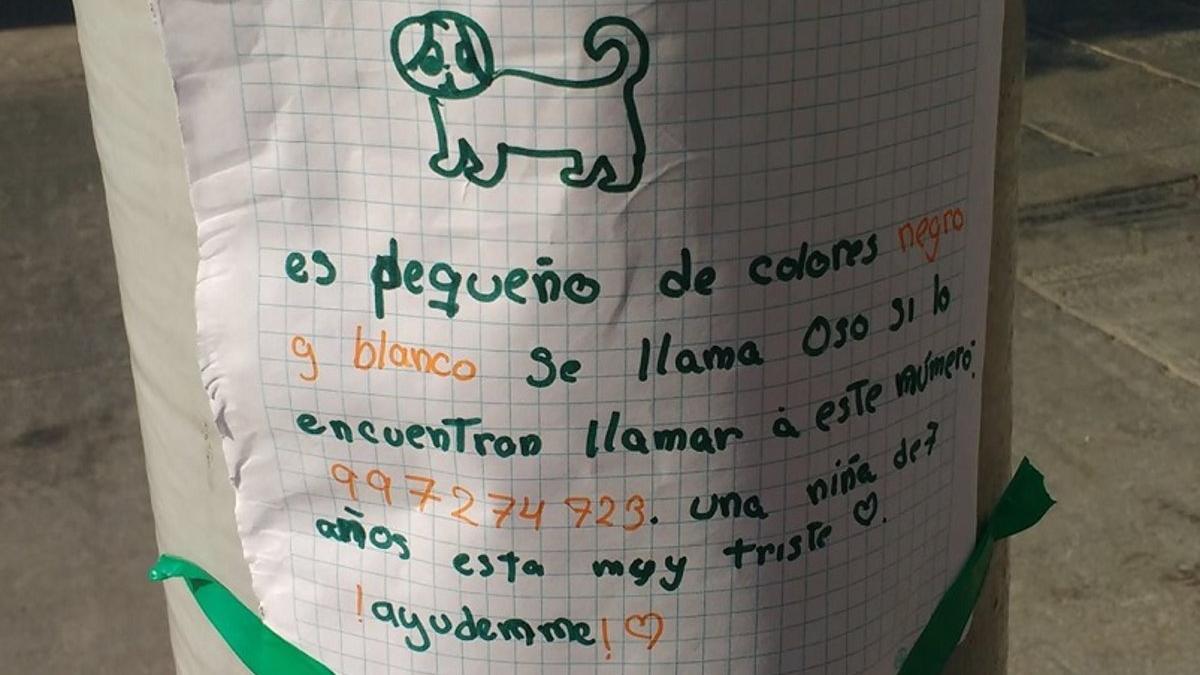 es pequeño de colores negro
y blanco se llama Oso si lo
encuentran llamar a este número:
997274723. una niña de 7
años esta muy triste ♡.
!ayudemme! ♡